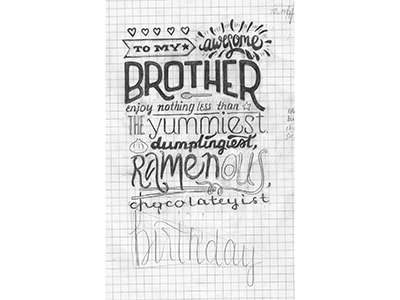 TO MY awesome
BROTHER
enjoy nothing less than
THE yummiest,
dumplingiest,
RAMENOUS,
chocolateyist
birthday